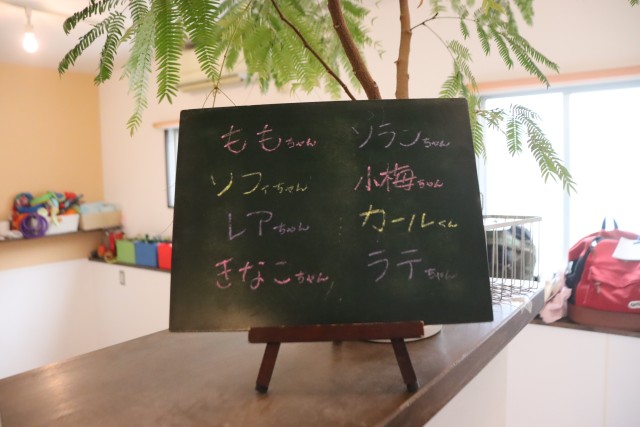 ももちゃん ソランちゃん
ソフィちゃん 小梅ちゃん
レアちゃん カールくん
きなこちゃん ラテちゃん